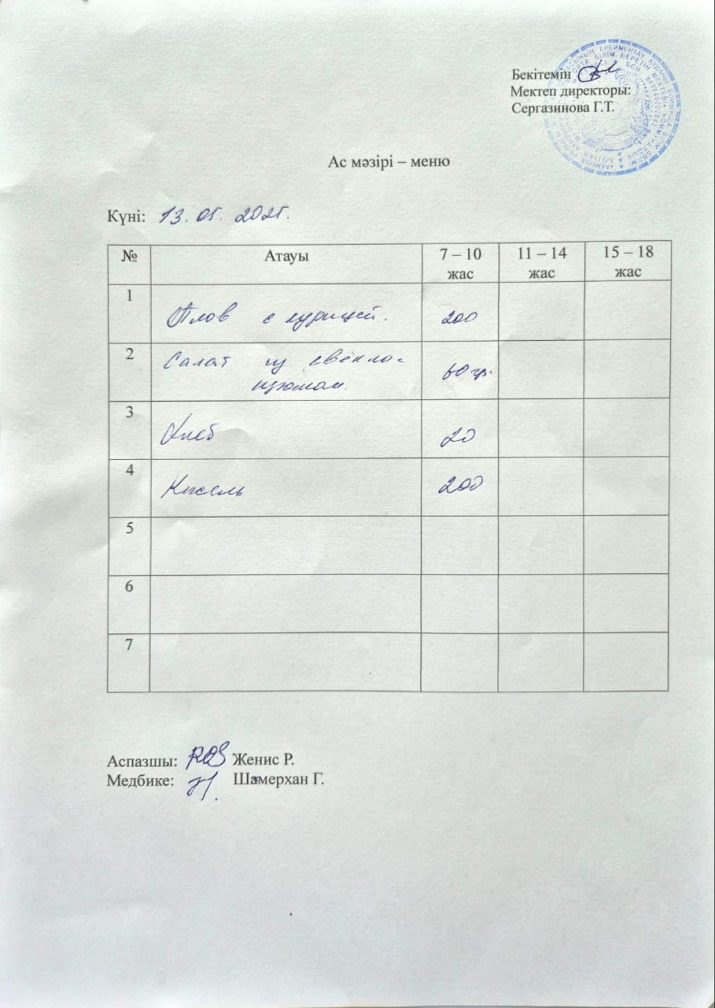 Бекітемін
Мектеп директоры:
Сергазинова Г.Т.
Ас мәзірі – меню
Күні: 13.05.2025.
№ Атауы 7 – 10 жас 11 – 14 жас 15 – 18 жас
1 Плов с курицей. 200
2 Салат из свекло-
изюмом. 60 гр.
3 Хлеб 20
4 Кисель 200
5
6
7
Аспазшы: Женис Р.
Медбике: Шамерхан Г.